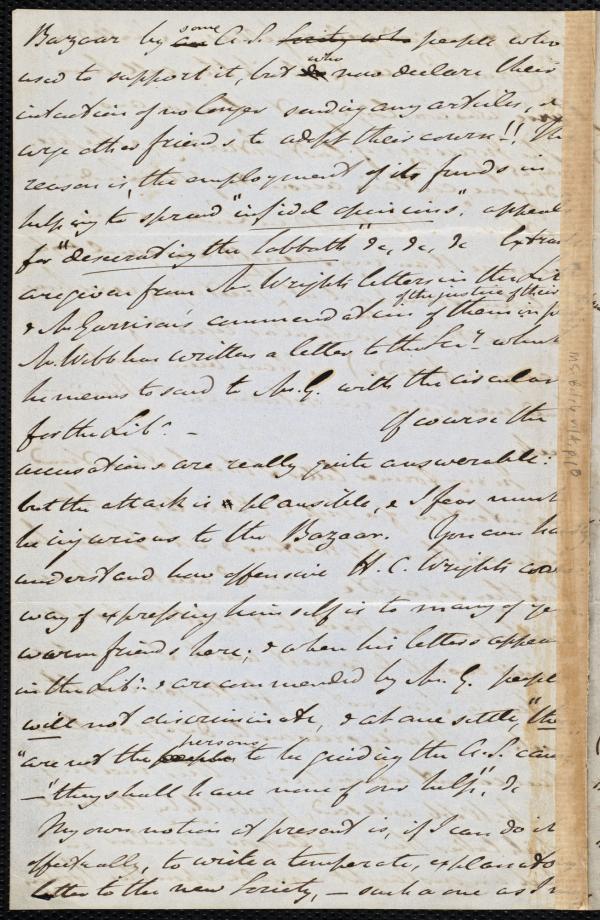 Bazaar by some A.S. Society who people who
used to support it, but who now declare their
intention of no longer sending any articles, &
urge other friends to adopt their course!! The
reason is, the employment of its funds in
helping to spread "infidel opinions", appeals
for "desecrating the Sabbath" &c, &c, &c Extracts
are given from Mr. Wright's letters in the Lib
of the justice of their
& Mr Garrison's commendations of them in
Mr. Webb has written a letter to the Secy. which
he means to send to Mr. G. with the circular
for the Libr. — Of course the
accusations are really quite answerable:
but the attack is plausible, & I fear must
be injurious to the Bazaar. You can hardly
understand how offensive H. C. Wright's
way of expressing himself is to many of ye
warm friends here; & when his letters appear
in the Libr. & are commended by Mr. G. people
will not discriminate, & at once settle, "the
"are not the persons to be guiding the A.S. cause
— "they shall have none of our help". &c
My own notion at present is, if I can do it
effectually, to write a temperate, explanatory
letter to the new Society, — such a one as I